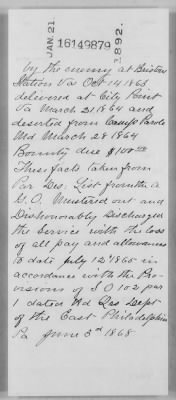 JAN. 21
16149879
1892.
by the enemy at Bristoe
Station Va Oct 14 1863
delivered at City Point
Va March 21 1864 and
deserted from Camp Parole
Md March 28 1864
Bounty due $100.00
These facts taken from
Par Des. List from the A
G.O. Mustered out and
Dishonorably Discharged
the Service with the loss
of all pay and allowances
to date July 12" 1865 in
accordance with the Pro-
visions of S O 102 par
1 dated Hd Qrs Dept
of the East Philadelphia
Pa June 3rd 1868